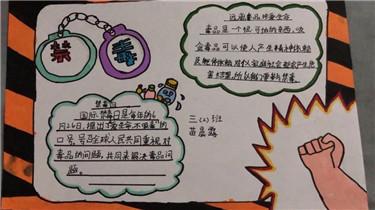 禁毒
远离毒品珍爱生命
毒品是一个很可怕的东西，吸
食毒品可以使人产生精神依赖
及躯体依赖，对个人家庭社会都会产生危
害
所以我们要参与禁毒。
禁毒日
国际禁毒日是每年的6
月26日，提出了“爱生命，不吸毒”的
口号，号召全球人民共同重视对
毒品的问题，共同来解决毒品问
题。
三（2）班
苗晨露